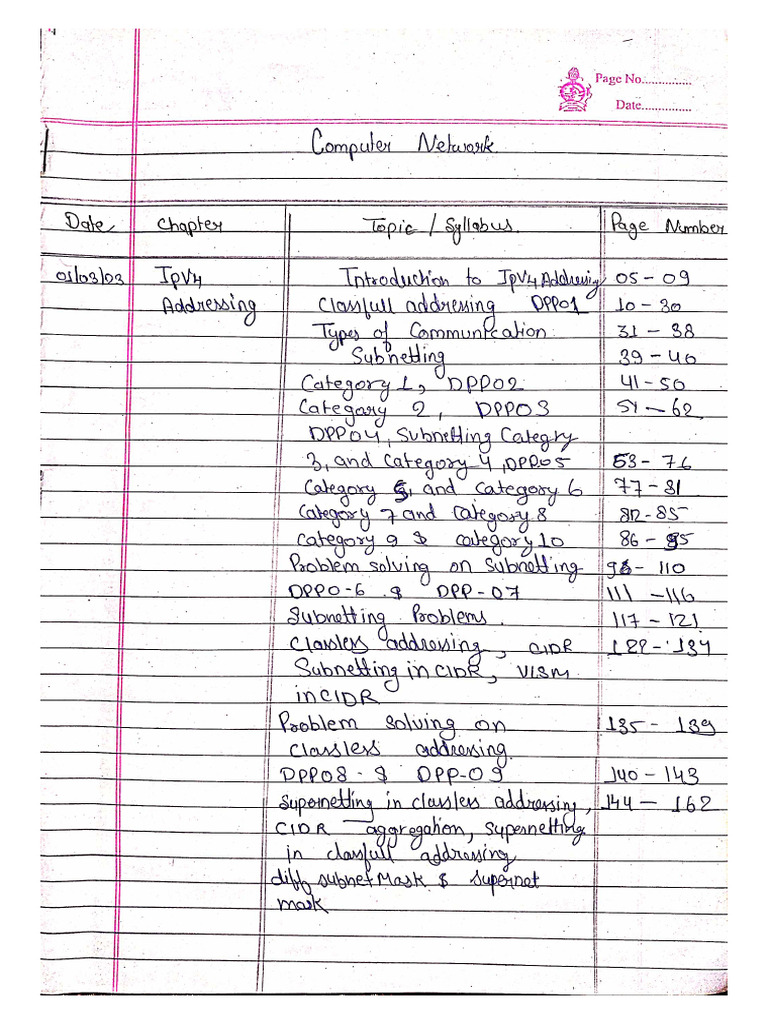 Page No...............
Date...............
Computer Network
Date Chapter Topic / Syllabus. Page Number
01/03/03 IPV4 Introduction to IPV4 Addressing 05 - 09
Addressing Classfull addressing DPP01 10 - 30
Types of Communication 31 - 38
Subnetting 39 - 40
Category 1, DPP02 41 - 50
Category 2, DPP03 51 - 62
DPP04, Subnetting Categry
3, and Category 4, DPP05 53 - 76
Category 5, and Category 6 77 - 81
Category 7 and Category 8 82 - 85
Category 9 & category 10 86 - 95
Problem solving on Subnetting 96 - 110
DPP0-6 & DPP-07 111 - 116
Subnetting Problems. 117 - 121
Classless addressing, CIDR 122 - 134
Subnetting in CIDR, VLSM
in CIDR
Problem solving on 135 - 139
classless addressing
DPP08 - & DPP-09 140 - 143
Supernetting in classless addressing, 144 - 162
CIDR aggregation, Supernetting
in classfull addressing
diff subnet Mask & supernet
mask